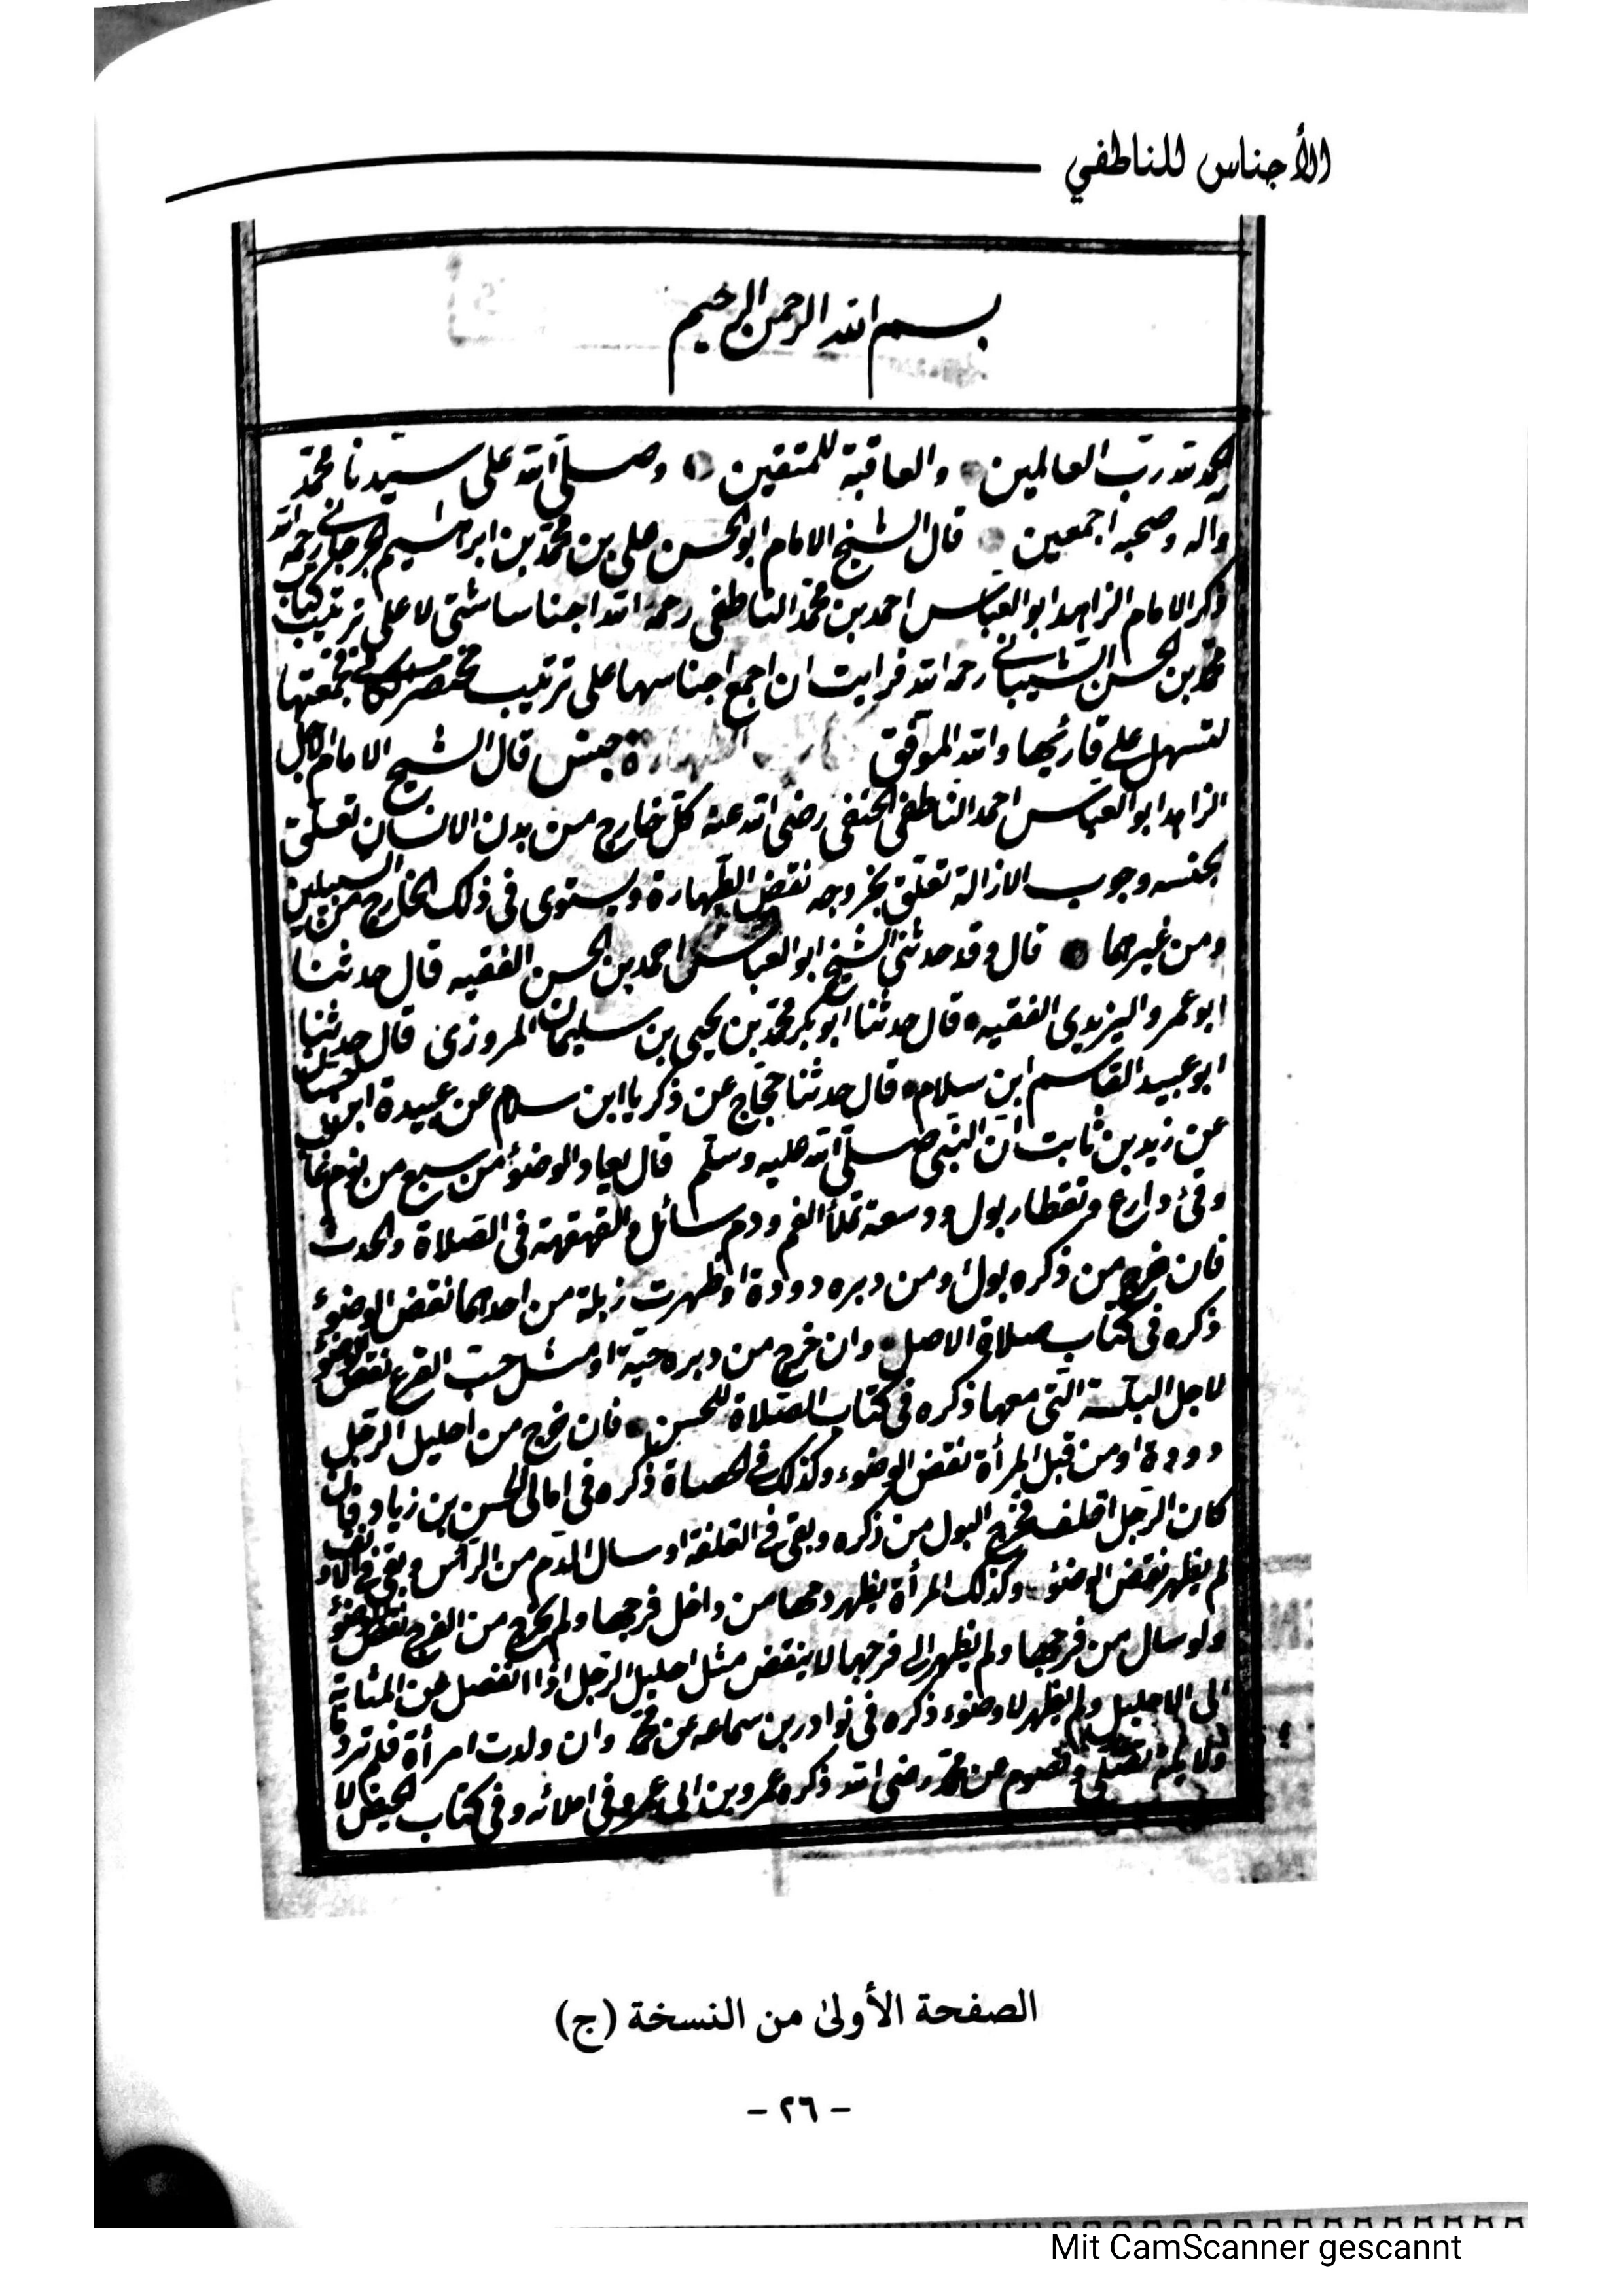 الأجناس للناطفي
بسم الله الرحمن الرحيم
الحمد لله رب العالمين والعاقبة للمتقين وصلى الله على سيدنا محمد
وآله وصحبه اجمعين قال الشيخ الامام ابو الحسن علي بن محمد بن ابراهيم الجرجاني رحمه الله
ذكر الامام الزاهد ابو العباس احمد بن محمد الناطفى رحمه الله اجناسا شتى لا على ترتيب كتاب
محمد بن الحسن الشيبانى رحمه الله فرايت ان اجمع اجناسها على ترتيب مختصر فجمعتها
لتسهل على قارئها والله الموفق جنس قال الشيخ الامام الاجل
الزاهد ابو العباس احمد الناطفى الحنفى رضى الله عنه كل خارج من بدن الانسان تعلق
بجنسه وجوب الازالة تعلق بخروجه نقض الطهارة ويستوى فى ذلك الخارج من السبيلين
ومن غيرهما قال وقد حدثنى الشيخ ابو العباس احمد بن الحسن الفقيه قال حدثنا
ابو عمر واليزيدى الفقيه قال حدثنا ابو بكر محمد بن يحيى بن سليمان المروزى قال حدثنا
ابو عبيد القاسم ابن سلام قال حدثنا حجاج عن ذكريا ابن سلام عن عبيدة ابن حسان
عن زيد بن ثابت ان النبى صلى الله عليه وسلم قال يعاد الوضوء من سبع من نوم غالب
وقئ دارع وتقطار بول ودسعة تملأ الفم ودم سائل والقهقهة فى الصلاة والحدث
فان خرج من ذكره بول ومن دبره دودة اوظهرت زبلة من احدهما نقض الوضوء
ذكره فى كتاب صلاة الاصل وان خرج من دبره حية او مثل حب القرع نقض الوضوء
لاجل البلة التى معها ذكره فى كتاب الصلاة للحسن فان خرج من احليل الرجل
دودة او من قبل المرأة نقض الوضوء وكذلك فى الحصاة ذكره فى امالى الحسن بن زياد فان
كان الرجل اقلف فخرج البول من ذكره وبقى فى القلفة او سال الدم من الرأس وبقى فى الانف
لم يظهر نقض الوضوء وكذلك المرأة يظهر دمها من داخل فرجها ولم يخرج من الفرج نقض الوضوء
ولو سال من فرجها ولم يظهر الى فرجها لا ينقض مثل احليل الرجل اذا انفصل عن المثانة
الى الاحليل ولم يظهر لا وضوء ذكره فى نوادر بن سماعه عن محمد وان ولدت امرأة فلم ترد
تصلى وتصوم عن محمد رضى الله ذكره عمرو بن ابى عمرو فى املائه وفى كتاب الحيض لا
الصفحة الأولى من النسخة (ج)
- ٢٦ -
Mit CamScanner gescannt